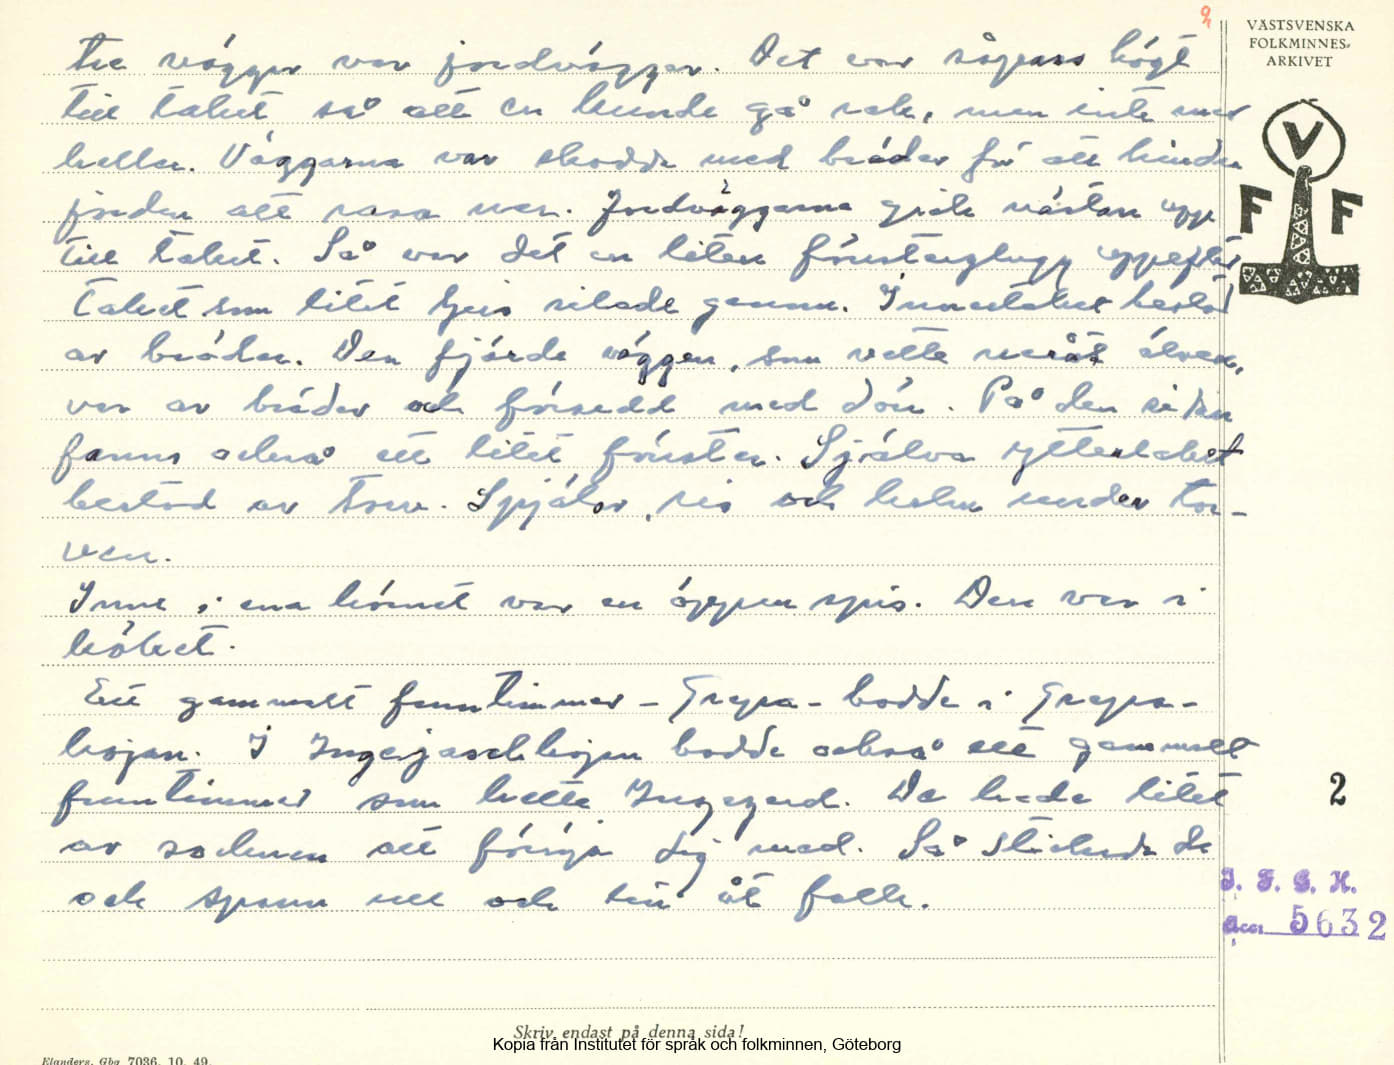 9
VÄSTSVENSKA
FOLKMINNES-
ARKIVET
V
F F
tre väggar var jordväggar. Det var så pass högt
till taket så att en kunde gå rak, men inte mer
heller. Väggarna var skodda med bräder för att hindra
jorden att rasa ner. Jordväggarna gick nästan upp
till taket. Så var det en liten fönsterglugg uppefter
taket som litet ljus silade genom. Innertaket bestod
av bräder. Den fjärde väggen, som vette neråt älven,
var av bräder och försedd med dörr. På den sidan
fanns också ett litet fönster. Själva yttertaket
bestod av torv. Spjälor, ris och halm under tor-
ven.
Inne i ena hörnet var en öppen spis. Den var i
köket.
Ett gammalt fruntimmer - Grepa - bodde i Grepa-
kojan. I kojan bodde också ett gammalt
fruntimmer som hette Ingegerd. De hade litet
av socknen att försörja sig med. Så stickade de
och spann ull och lin åt folk.
2
J. F. G. H.
Acc. 5632
Skriv endast på denna sida!
Kopia från Institutet för språk och folkminnen, Göteborg
Elanders, Gbg 7036. 10. 49.